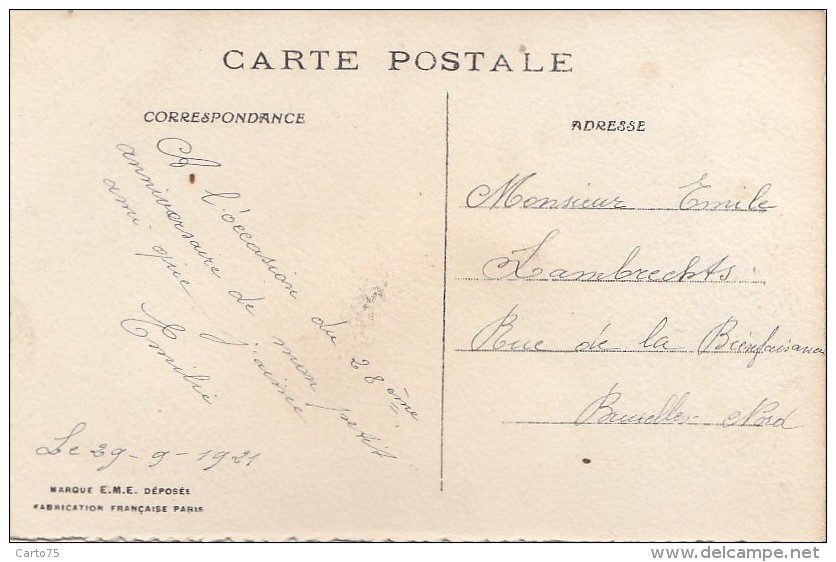 CARTE POSTALE
CORRESPONDANCE
A l'occasion du 28ème
anniversaire de mon petit
ami que j'aime
Emilie
Le 29-9-1921
MARQUE E.M.E. DÉPOSÉE
FABRICATION FRANÇAISE PARIS
ADRESSE
Monsieur Emile
Lambrechts
Rue de la Bienfaisance
Bruxelles Nord
Carto75
www.delcampe.net